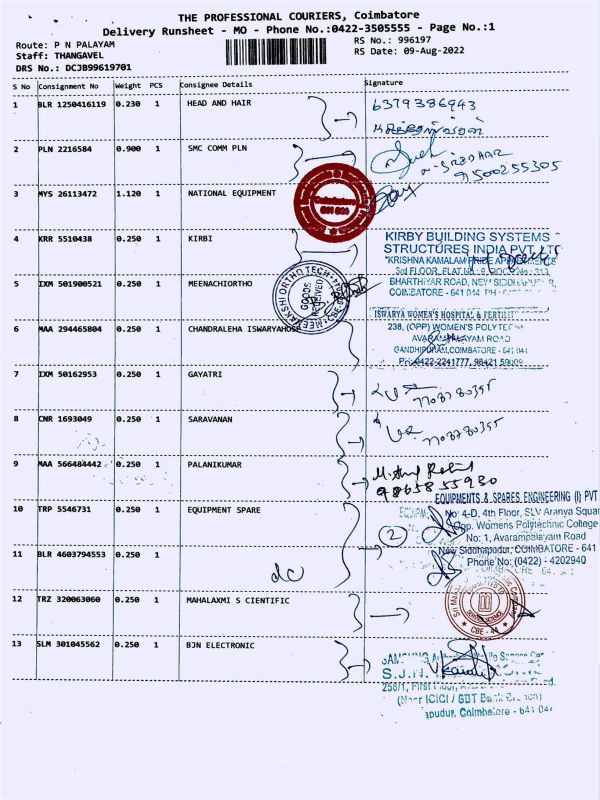 THE PROFESSIONAL COURIERS, Coimbatore
Delivery Runsheet - MO - Phone No.:0422-3505555 - Page No.:1
Route: P N PALAYAM
RS No.: 996197
Staff: THANGAVEL
RS Date: 09-Aug-2022
DRS No.: DCJB99619701
S No Consignment No Weight PCS Consignee Details Signature
1 BLR 1250416119 0.230 1 HEAD AND HAIR 6379386943
2 PLN 2216584 0.900 1 SMC COMM PLN
N. SREDHAR
9500255305
3 MYS 26113472 1.120 1 NATIONAL EQUIPMENT
Coimbatore
641 604
4 KRR 5510438 0.250 1 KIRBI
KIRBY BUILDING SYSTEMS
STRUCTURES INDIA PVT. LTD
"KRISHNA KAMALAM
3rd FLOOR, FLAT No
BHARTHIYAR ROAD, NEW SIDDHAPUDUR,
COIMBATORE - 641 044
5 IXM 501900521 0.250 1 MEENACHIORTHO
MEENAKSHI ORTHO TECH
GOODS
RECEIVED
6 MAA 294465804 0.250 1 CHANDRALEHA ISWARYAHOSP
ISWARYA WOMEN'S HOSPITAL & FERTILITY
238, (OPP) WOMEN'S POLYTECH
AVARAMPALAYAM ROAD
GANDHIPURAM, COIMBATORE - 641 044
PH: 0422-2241777, 98421 59009
7 IXM 50162953 0.250 1 GAYATRI 7708780355
8 CNR 1693049 0.250 1 SARAVANAN 7708780355
9 MAA 566484442 0.250 1 PALANIKUMAR
9865855930
EQUIPMENTS & SPARES ENGINEERING (I) PVT
10 TRP 5546731 0.250 1 EQUIPMENT SPARE
No: 4-D, 4th Floor, SLV Aranya Squar
Opp. Womens Polytechnic College
2
No: 1, Avarampalayam Road
New Siddhapudur, COIMBATORE - 641
11 BLR 4603794553 0.250 1
Phone No: (0422) - 4202940
dc
12 TRZ 320063060 0.250 1 MAHALAXMI S CIENTIFIC
CBE - 44
13 SLM 301045562 0.250 1 BJN ELECTRONIC
SAMSUNG
S.J.N.
258/1, First Floor,
(Near ICICI / Bank
apudur, Coimbatore - 641 044